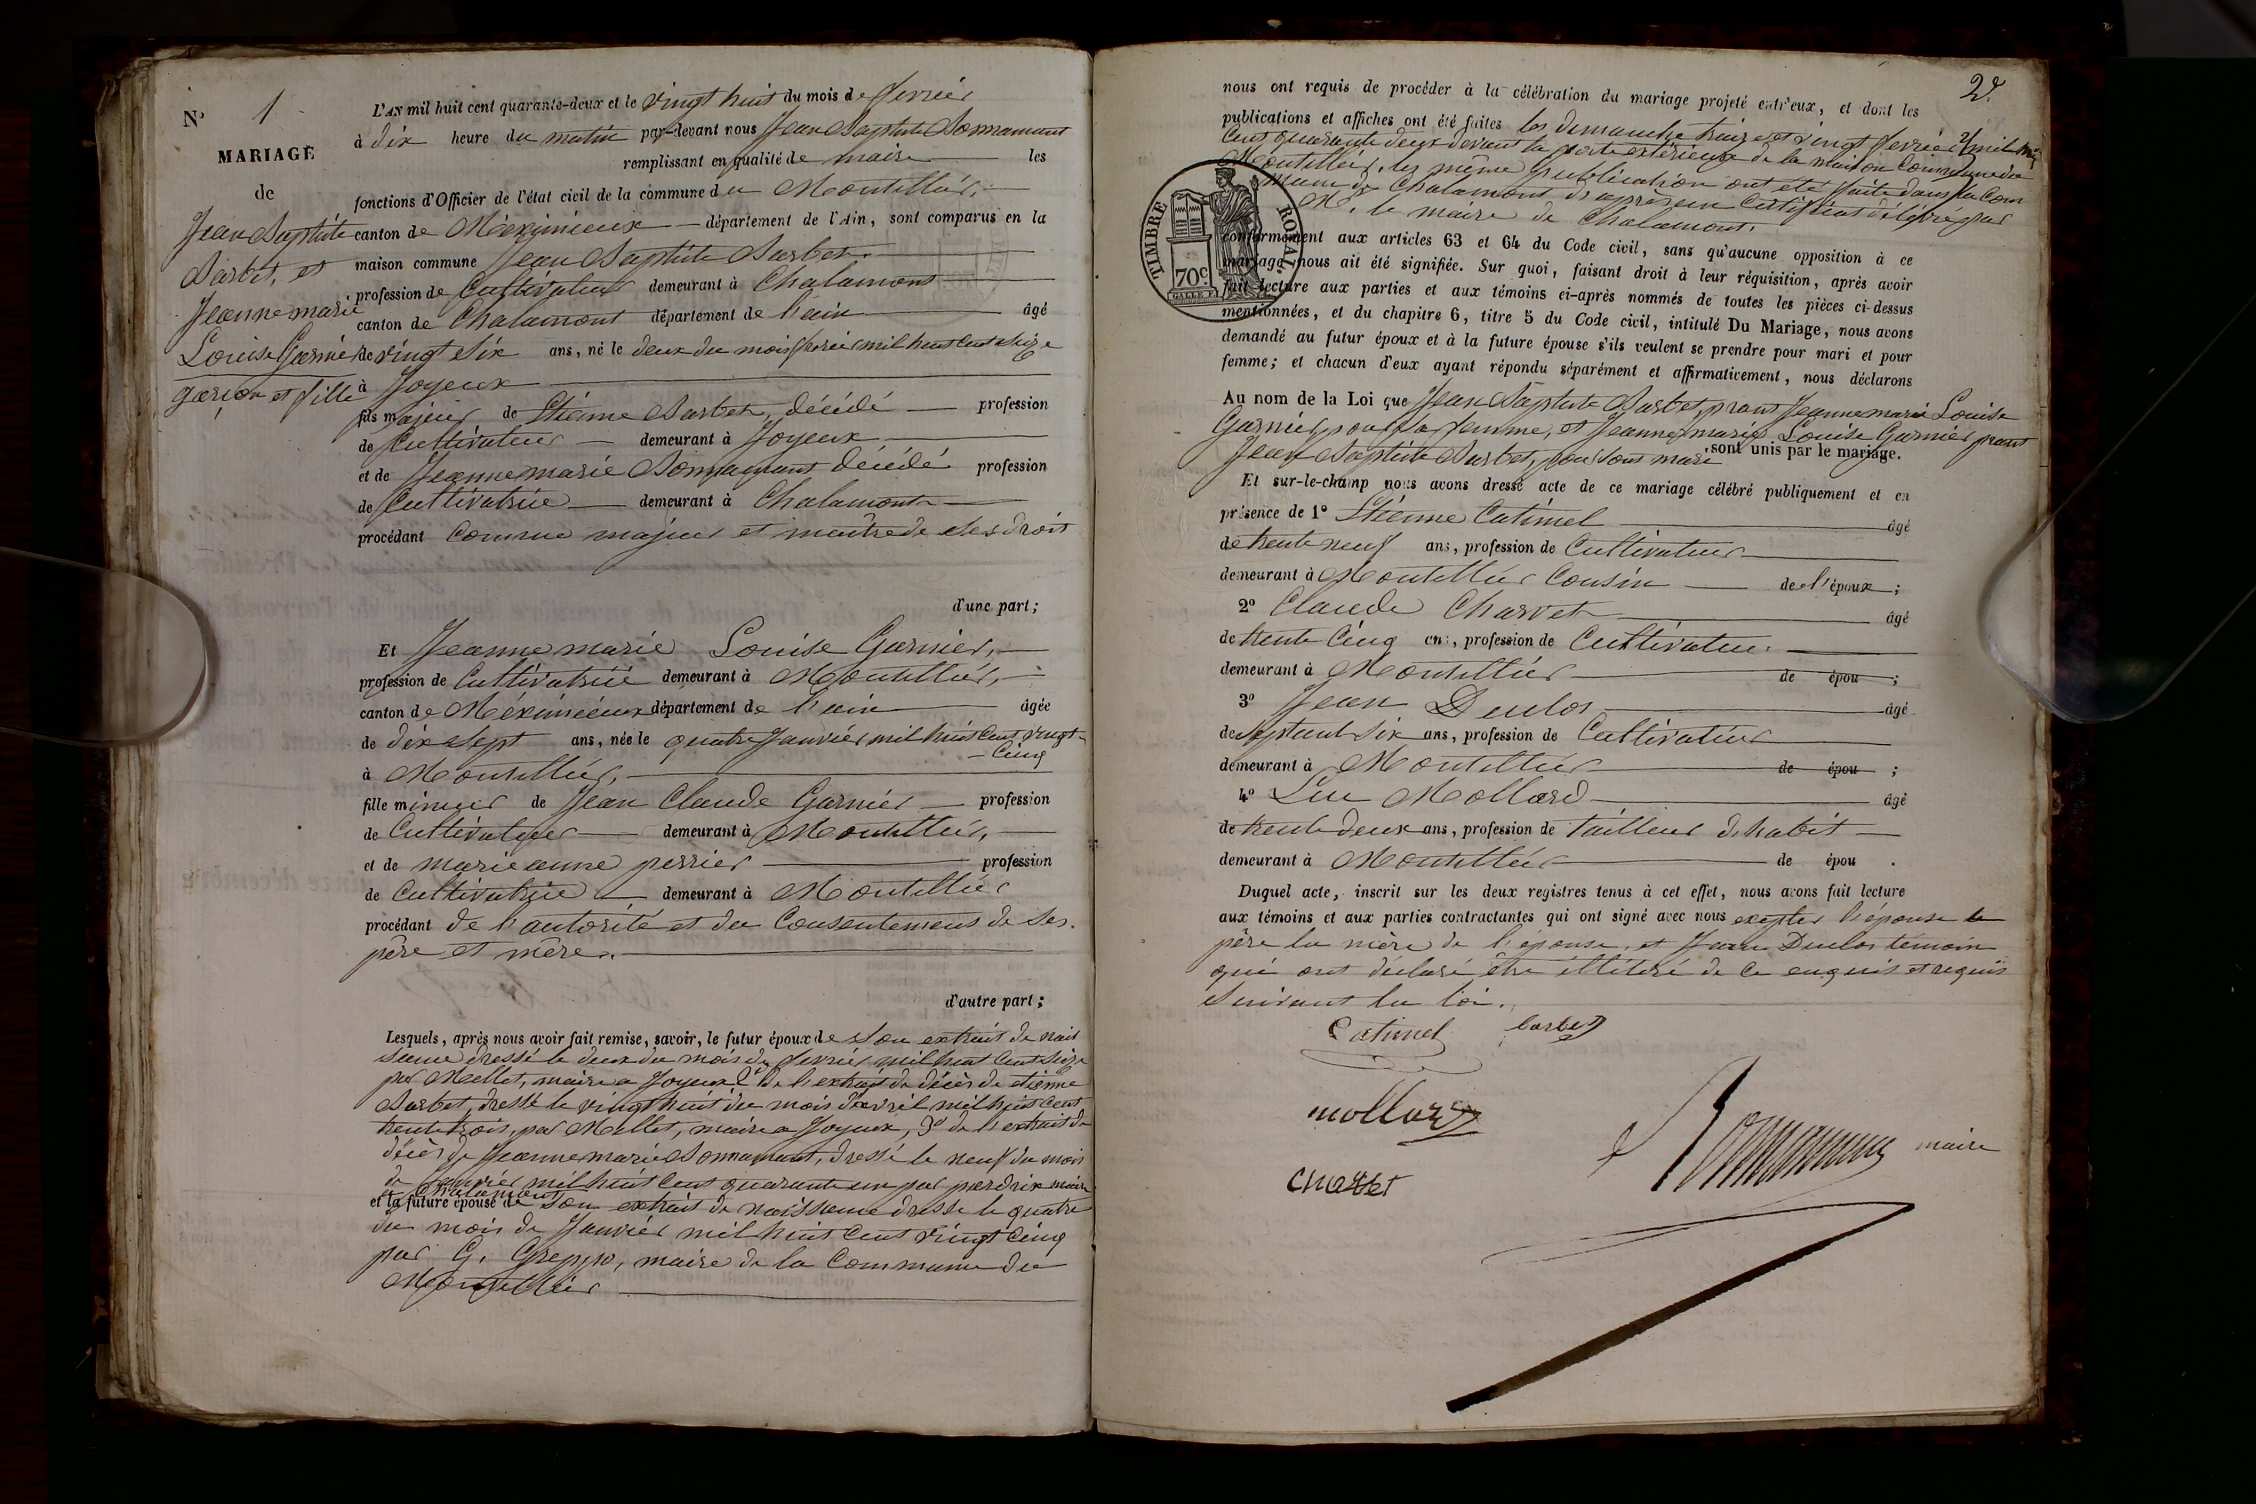 N° 1
MARIAGE
de
Jean Baptiste
Barbet, et
Jeanne marie
Louise Garnier
garçon et fille
L'AN mil huit cent quarante-deux et le vingt huit du mois de fevrier
à dix heure du matin par-devant nous Jean Baptiste Bonnamant
remplissant en qualité de maire les
fonctions d'Officier de l'état civil de la commune du Montellier,
canton de Méximieux département de l'Ain, sont comparus en la
maison commune Jean Baptiste Barbet.
profession de Cultivateur demeurant à Chalamont
canton de Chalamont département de l'ain âgé
de vingt six ans, né le deux du mois fevrier mil huit cent seize
à Joyeux
fils majeur de Etienne Barbet, décédé profession
de Cultivateur demeurant à Joyeux
et de Jeanne marie Bonnamant décédé profession
de Cultivatrice demeurant à Chalamont
procédant comme majeur et maitre de ses droit
d'une part;
Et Jeanne marie Louise Garnier,
profession de Cultivatrice demeurant à Montellier,
canton de Méximieux département de l'ain âgée
de dix sept ans, née le quatre Janvier mil huit cent vingt
cinq
à Montellier,
fille mineur de Jean Claude Garnier profession
de Cultivateur demeurant à Montellier,
et de marie anne perrier profession
de Cultivatrice demeurant à Montellier
procédant de l'autorité et du Consentement de ses
père et mère.
d'autre part;
Lesquels, après nous avoir fait remise, savoir, le futur époux de son extrait de nais
sance dressé le deux du mois de fevrier mil huit cent seize
par Mellet, maire a Joyeux 2° de l'extrait de décès de etienne
Barbet, dressé le vingt huit du mois d'avril mil huit cent
trente trois, par Mellet, maire a Joyeux, 3° de l'extrait de
décès de Jeanne marie Bonnamant, dressé le neuf du mois
de Janvier mil huit cent quarante un par perdrix maire
a Chalamont
et la future épouse de son extrait de naissance dressé le quatre
du mois de Janvier mil huit cent vingt cinq
par G. Greppo, maire de la Commune du
Montellier
2e.
nous ont requis de procéder à la célébration du mariage projeté entr'eux, et dont les
publications et affiches ont été faites les dimanche treize et vingt fevrier mil huit
cent quarante deux devant la porte extérieur de la maison Commune du
Montellier, les même publication ont été faite dans la Com
mune de Chalamont d'apres un Certificat délivré par
M. le maire de Chalamont.
conformément aux articles 63 et 64 du Code civil, sans qu'aucune opposition à ce
mariage nous ait été signifiée. Sur quoi, faisant droit à leur réquisition, après avoir
fait lecture aux parties et aux témoins ci-après nommés de toutes les pièces ci-dessus
mentionnées, et du chapitre 6, titre 5 du Code civil, intitulé Du Mariage, nous avons
demandé au futur époux et à la future épouse s'ils veulent se prendre pour mari et pour
femme; et chacun d'eux ayant répondu séparément et affirmativement, nous déclarons
TIMBRE ROYAL
70c.
Au nom de la Loi que Jean Baptiste Barbet, prant Jeanne marie Louise
Garnier, pour sa femme, et Jeanne marie Louise Garnier prant
Jean Baptiste Barbet, pour sont mari sont unis par le mariage.
Et sur-le-champ nous avons dressé acte de ce mariage célébré publiquement et en
présence de 1° Etienne Catimel âgé
de trente neuf ans, profession de Cultivateur
demeurant à Montellier Cousin de l'époux;
2° Claude Charvet âgé
de trente Cinq ans, profession de Cultivateur
demeurant à Montellier de épou ;
3° Jean Duclos âgé
de septant six ans, profession de Cultivateur
demeurant à Montellier de épou ;
4° Luc Mollard âgé
de trente deux ans, profession de tailleur d'habit
demeurant à Montellier de épou .
Duquel acte, inscrit sur les deux registres tenus à cet effet, nous avons fait lecture
aux témoins et aux parties contractantes qui ont signé avec nous excepter l'épouse le
père la mère de l'épouse, et Jean Duclos témoin
qui ont déclaré être illétéré de ce enquis et requis
Suivant la loi.
Catimel barbet
mollard
Bonnamant maire